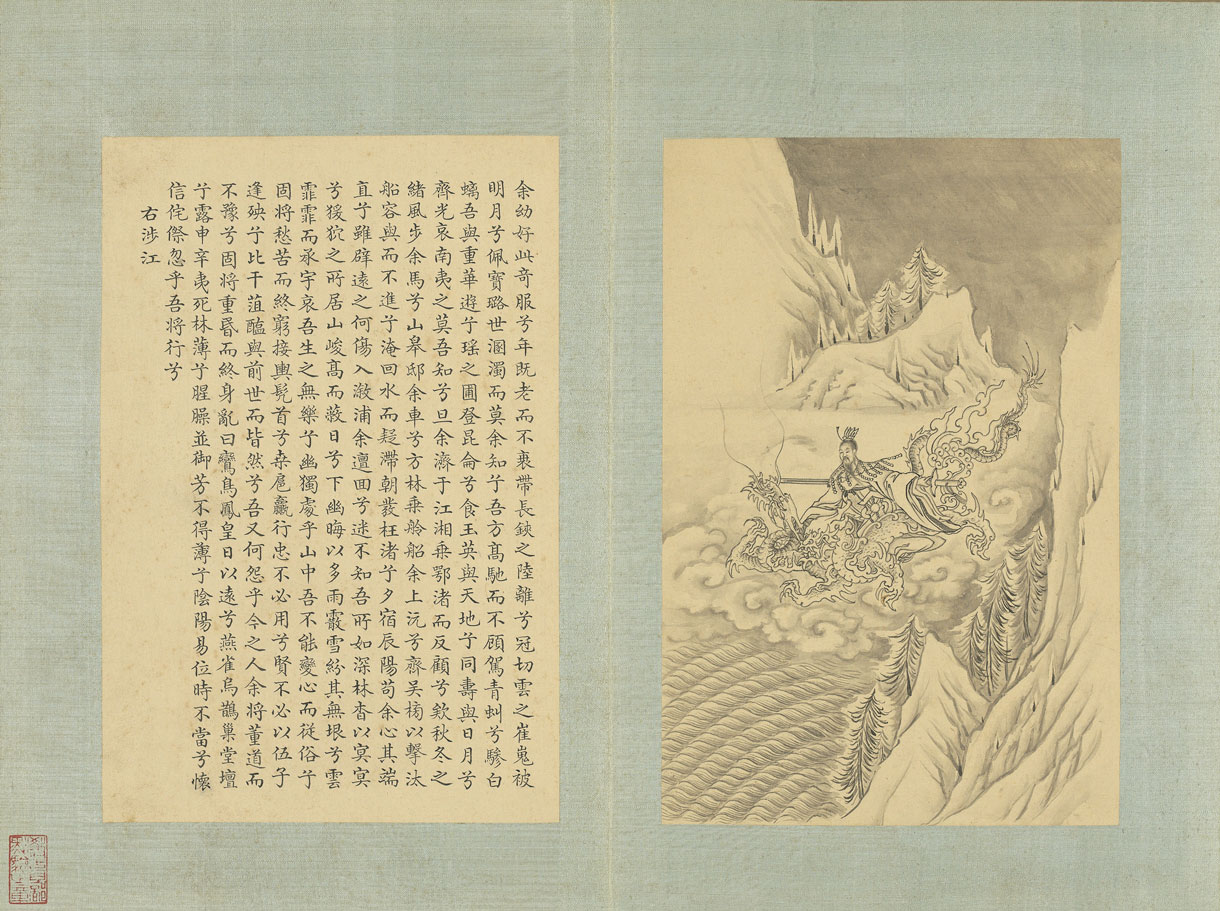 余幼好此奇服兮年既老而不衰帶長鋏之陸離兮冠切雲之崔嵬被
明月兮佩寶璐世溷濁而莫余知兮吾方髙馳而不顧駕青虯兮驂白
螭吾與重華遊兮瑤之圃登昆侖兮食玉英與天地兮同壽與日月兮
齊光哀南夷之莫吾知兮旦余濟于江湘乗鄂渚而反顧兮欸秋冬之
緒風步余馬兮山皋邸余車兮方林乗舲船余上沅兮齊吳榜以擊汰
船容與而不進兮淹回水而疑滯朝發枉渚兮夕宿辰陽苟余心其端
直兮雖辟逺之何傷入漵浦余邅回兮迷不知吾所如深林杳以冥冥
兮猨狖之所居山峻髙而蔽日兮下幽晦以多雨霰雪紛其無垠兮雲
霏霏而承宇哀吾生之無樂兮幽獨處乎山中吾不能變心而從俗兮
固將愁苦而終窮接輿髡首兮桑扈臝行忠不必用兮賢不必以伍子
逢殃兮比干菹醢與前世而皆然兮吾又何怨乎今之人余將董道而
不豫兮固將重昬而終身亂曰鸞鳥鳳皇日以逺兮燕雀烏鵲巢堂壇
兮露申辛夷死林薄兮腥臊並御芳不得薄兮陰陽易位時不當兮懷
信侘傺忽乎吾將行兮
右涉江